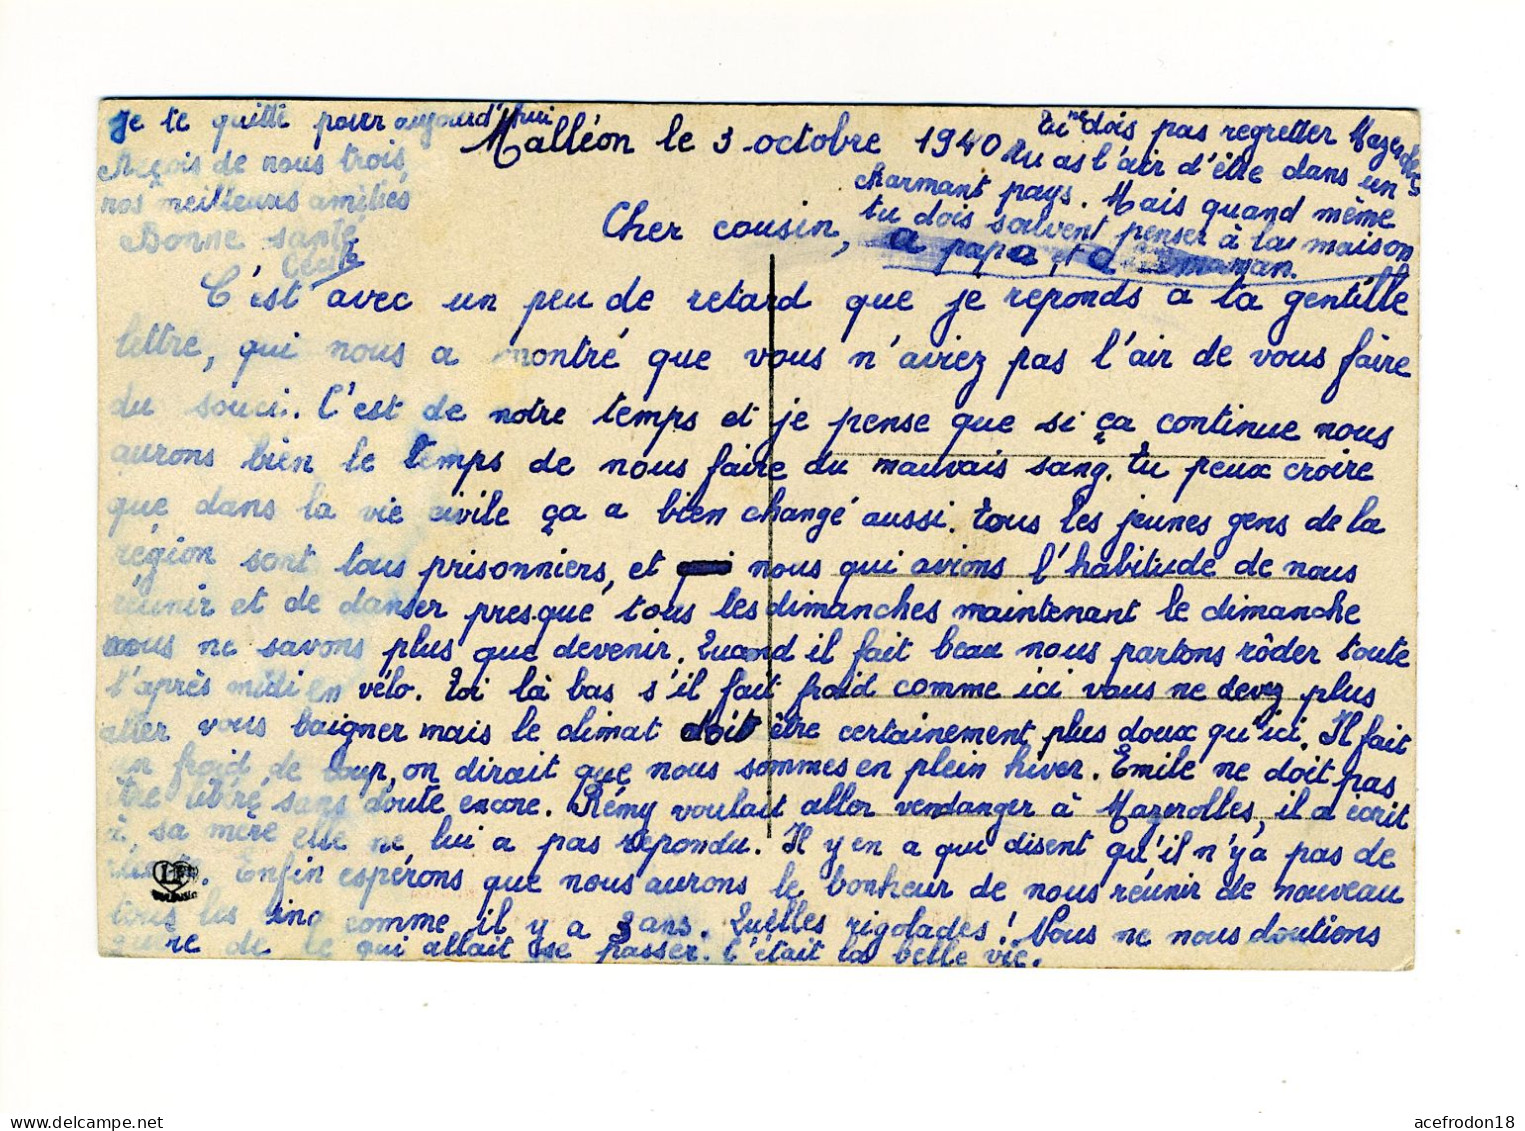 Malléon le 3 octobre 1940
Cher cousin,
C'est avec un peu de retard que je reponds a ta gentille
lettre, qui nous a montré que vous n'aviez pas l'air de vous faire
du souci. C'est de notre temps et je pense que si ça continue nous
aurons bien le temps de nous faire du mauvais sang. Tu peux croire
que dans la vie civile ça a bien changé aussi. Tous les jeunes gens de la
région sont tous prisonniers, et nous qui avions l'habitude de nous
réunir et de danser presque tous les dimanches maintenant le dimanche
nous ne savons plus que devenir. Quand il fait beau nous partons rôder toute
l'après midi en vélo. Toi là bas s'il fait froid comme ici vous ne devez plus
aller vous baigner mais le climat doit être certainement plus doux qu'ici. Il fait
un froid de loup, on dirait que nous sommes en plein hiver. Emile ne doit pas
être libéré, sans doute encore. Rémy voulait aller vendanger à Mazerolles, il a écrit
à sa mère elle ne lui a pas repondu. Il y en a qui disent qu'il n'y a pas de
Enfin espérons que nous aurons le bonheur de nous réunir de nouveau
tous les cinq comme il y a 3 ans. Quelles rigolades! Nous ne nous doutions
guere de ce qui allait se passer. C'était la belle vie.
Tu ne dois pas regretter Mazerolles
tu as l'air d'être dans un
charmant pays. Mais quand même
tu dois souvent penser à la maison
a papa et a maman.
Je te quitte pour aujourd'hui
Reçois de nous trois,
nos meilleurs amitiés
Bonne santé
Cécile
acefrodon18